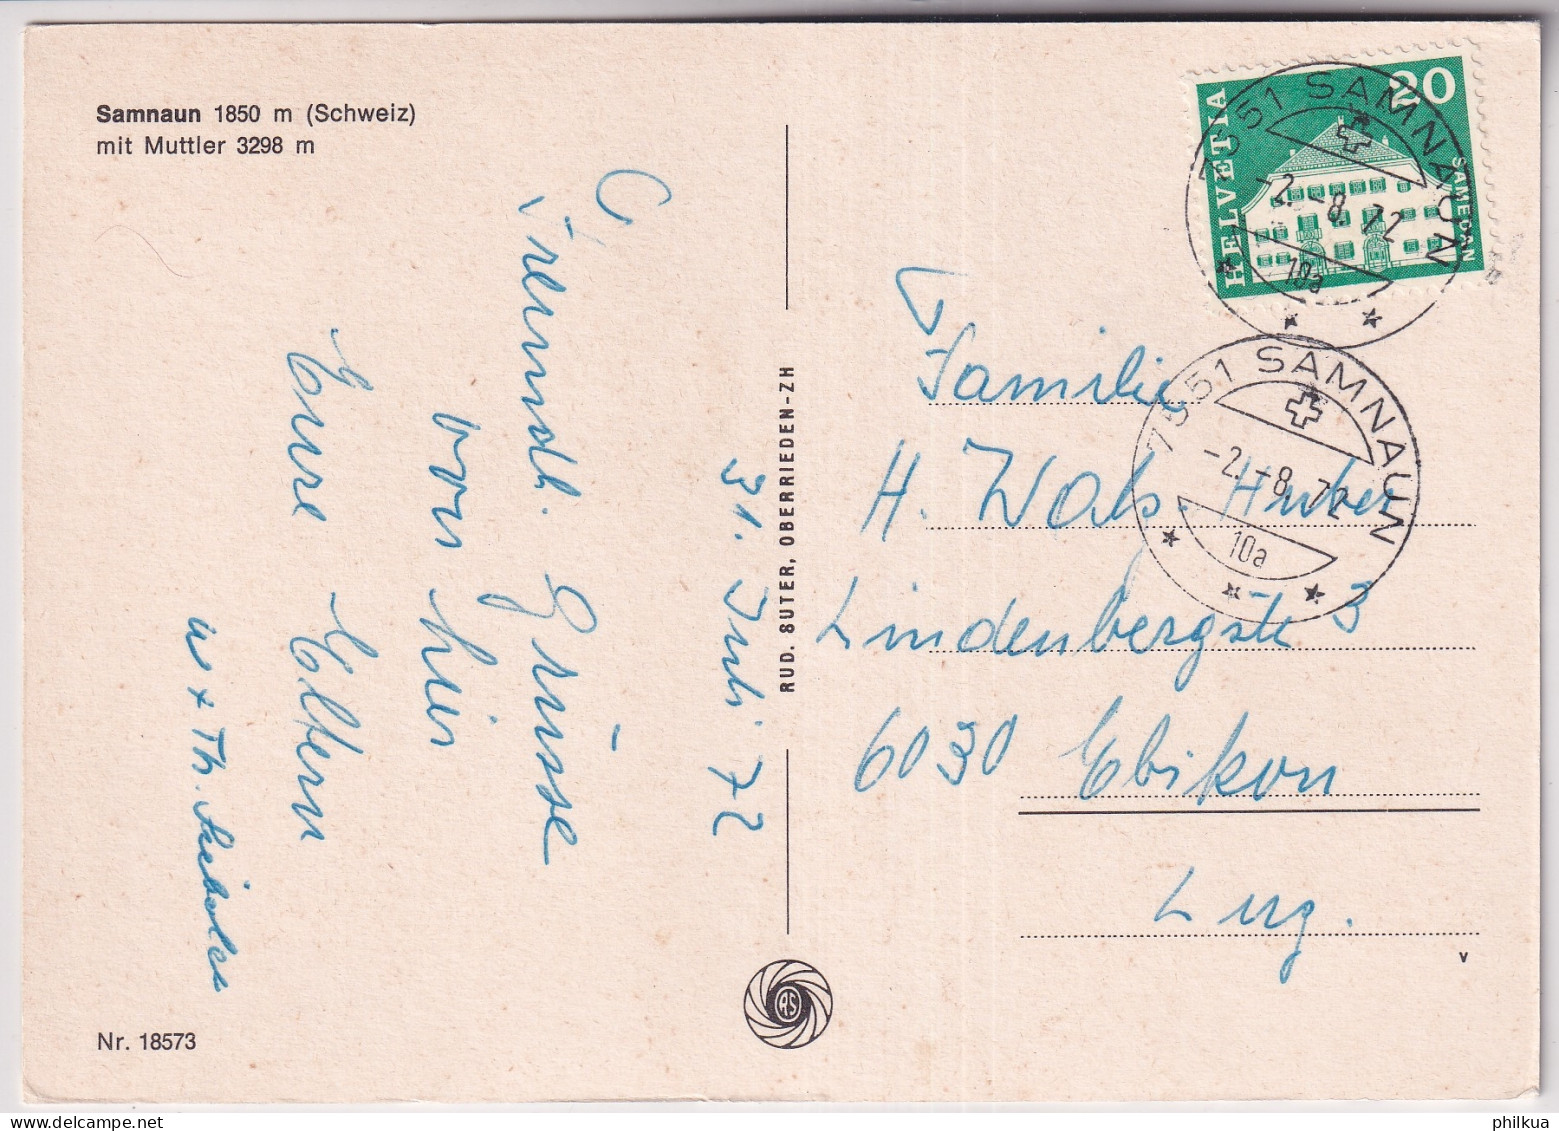 Samnaun 1850 m (Schweiz)
mit Muttler 3298 m
31. Juli 72
Freundl. Grüsse
von hier
Eure Eltern
u + Th.
Nr. 18573
RUD. SUTER, OBERRIEDEN-ZH
RS
HELVETIA
20
SAMEDAN
7551 SAMNAUN
-2.-8.72
10a
7551 SAMNAUN
-2.-8.72
10a
Familie
H. Huber
Lindenbergstr 3
6030 Ebikon
Luz.
v
philkua